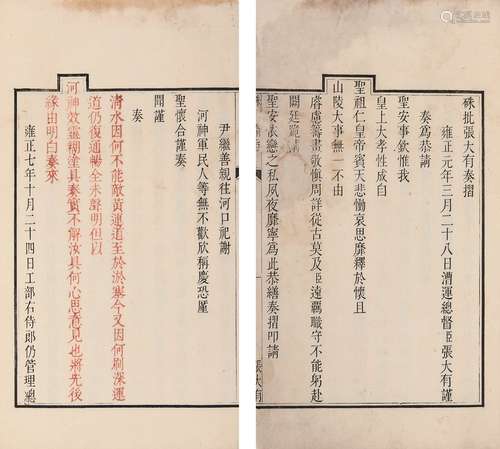 硃批張大有奏摺
雍正元年三月二十八日漕運總督臣張大有謹
奏為恭請
聖安事欽惟我
皇上大孝性成自
聖祖仁皇帝賓天悲慟哀思靡釋於懷且
山陵大事無一不由
睿慮籌畫敬慎周詳從古莫及臣遠羈職守不能躬赴
闕廷瞻
聖安依戀之私夙夜靡寧為此恭繕奏摺叩請
張大有
尹繼善親往河口祀謝
河神軍民人等無不歡欣稱慶恐廑
聖懷合謹奏
聞謹
奏
清水因何不能敵黃運道至於淤塞今又因何刷深運
道仍復通暢全未聲明但以
河神效靈糊塗具奏實不解汝具何心思意見也將先後
緣由明白奏來
雍正七年十月二十四日工部右侍郎仍管理總